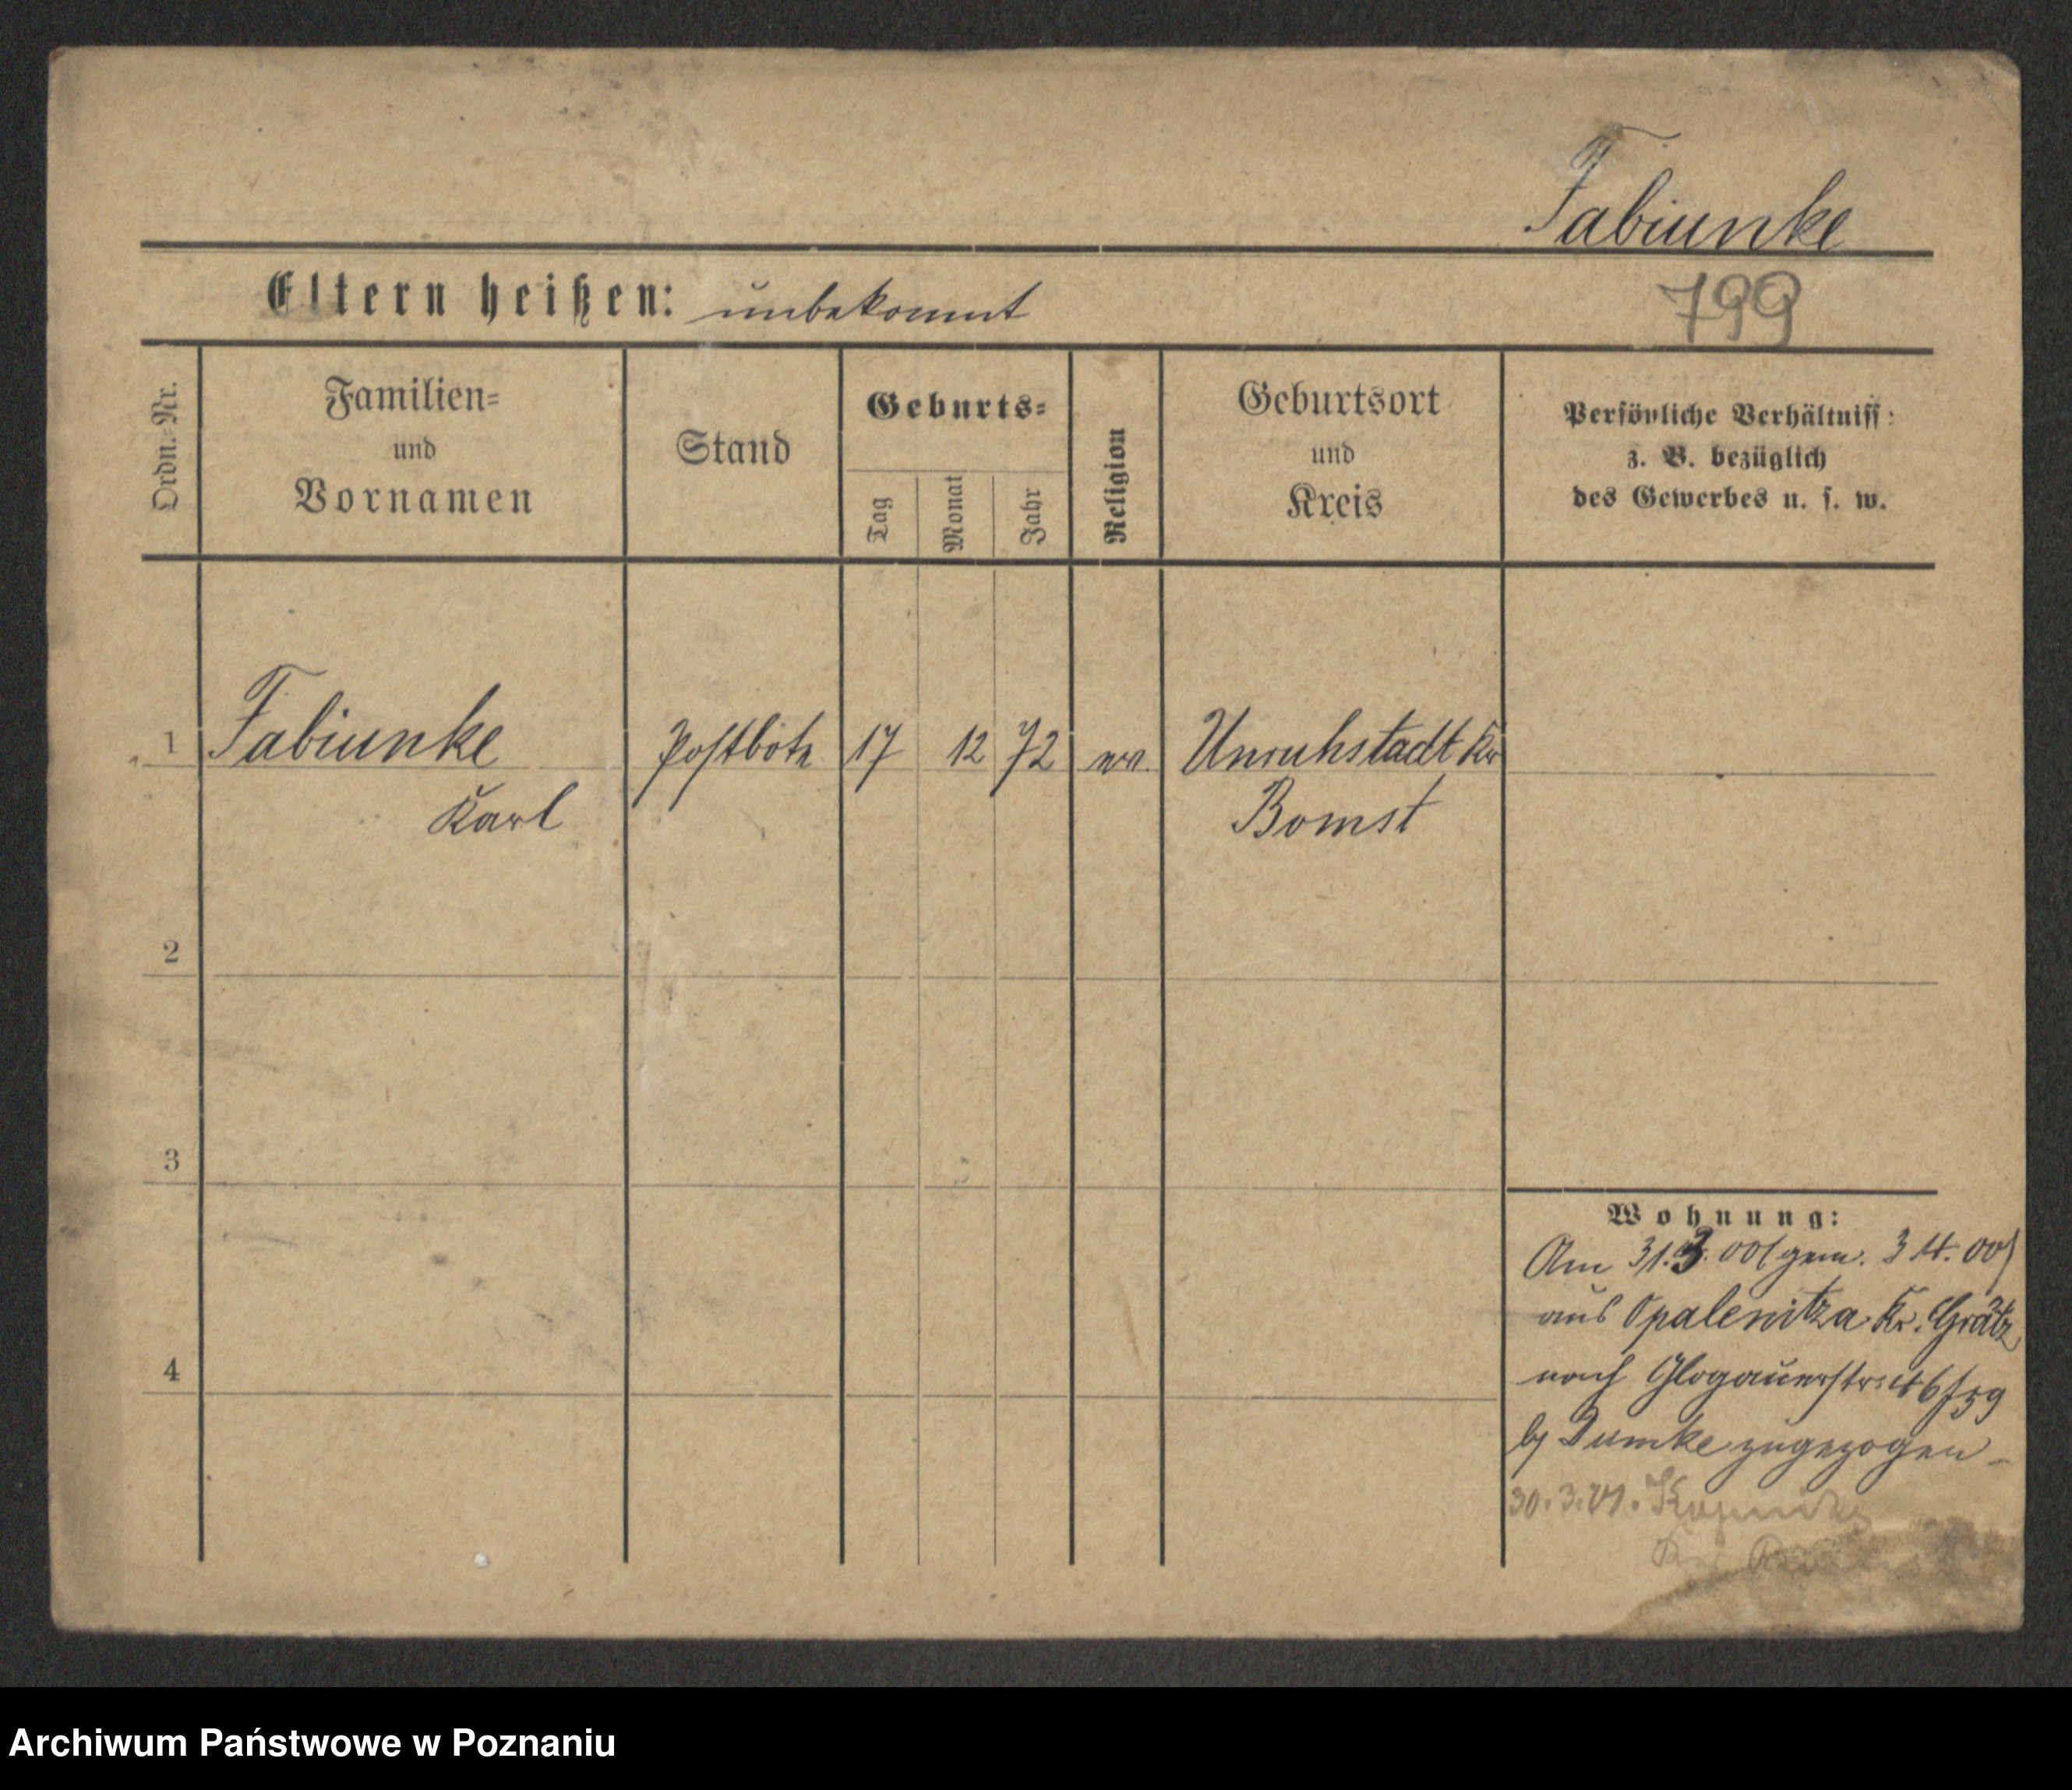 Fabiunke
Eltern heißen: unbekannt
799
Ordn.-Nr.
Familien-
und
Vornamen
Stand
Geburts-
Tag
Monat
Jahr
Religion
Geburtsort
und
Kreis
Persönliche Verhältniss
z. B. bezüglich
des Gewerbes u. s. w.
1 Fabiunke Postbote 17 12 72 ev. Unruhstadt Kr
Karl Bomst
2
3
4
Wohnung:
Am 31.3.00 (gem. 3 4. 00)
aus Opalenitza Kr. Grätz
nach Glogauerstr.
by Dumke zugezogen -
30.3.01. Kopnitz
Archiwum Państwowe w Poznaniu